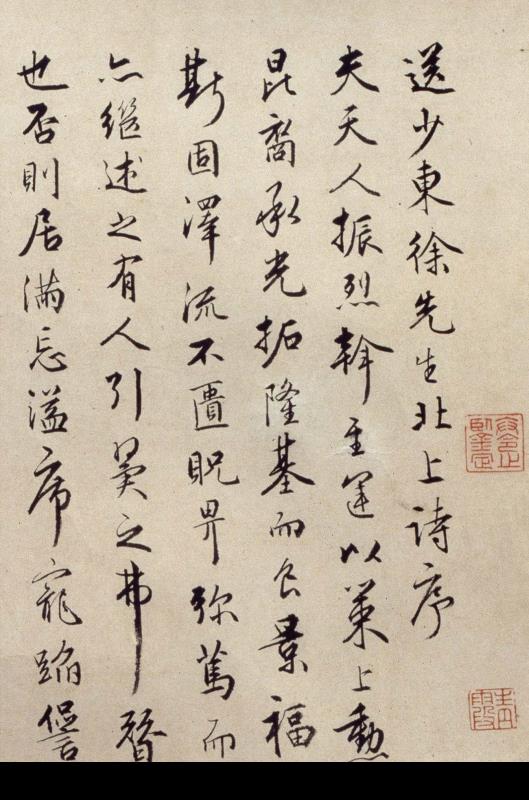 送少東徐先生北上詩序
夫天人振烈斡主運以策上勳
昆裔承光拓隆基而介景福
斯固澤流不匱貺畀弥篤而
亦繼述之有人引翼之弗替
也否則居滿忘溢席寵蹈諐